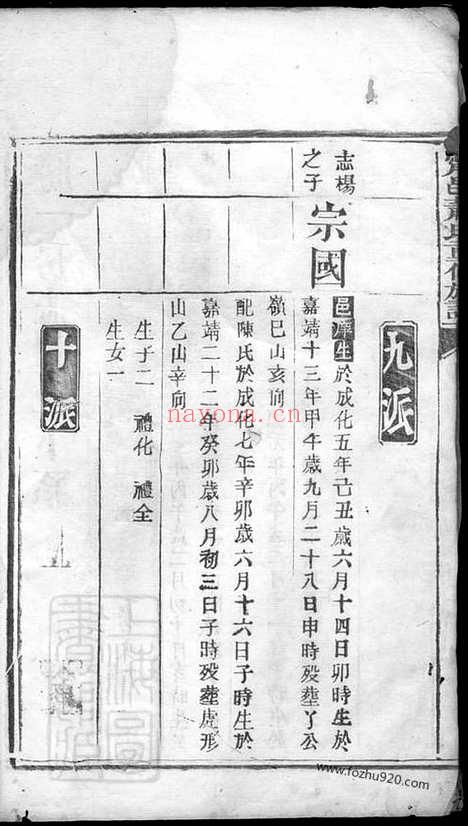 九派
志楊之子
宗國
邑庠生於成化五年己丑歲六月十四日卯時生於
嘉靖十三年甲午歲九月二十八日申時殁塟丫公
嶺巳山亥向
配陳氏於成化七年辛卯歲六月十六日子時生於
嘉靖二十二年癸卯歲八月初三日子時殁塟虎形
山乙山辛向
生子二 禮化 禮全
生女一
十派
nayona.cn
www.fozhu920.com